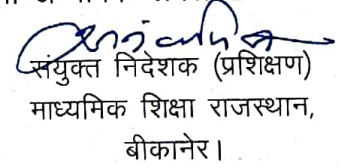 संयुक्त निदेशक (प्रशिक्षण)
माध्यमिक शिक्षा राजस्थान,
बीकानेर।